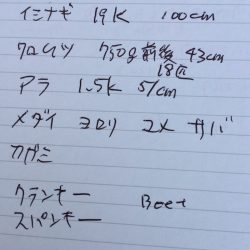 イシナギ 19K 100cm
クロムツ 750g前後 43cm
18匹
アラ 1.5K 51cm
メダイ ヨロリ ユメ サバ
カガミ
クランキー Beet
スパンキー